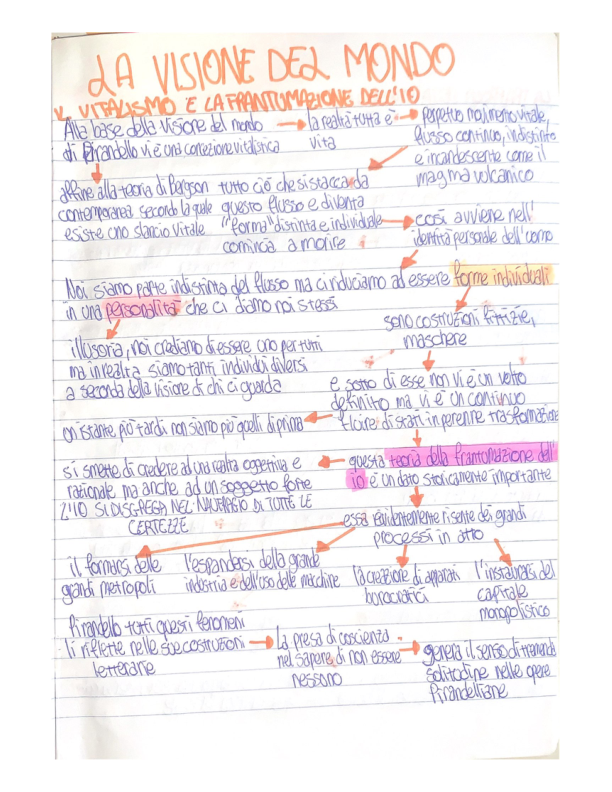 LA VISIONE DEL MONDO
VITALISMO E LA FRANTUMAZIONE DELL'IO
Alla base della visione del mondo
di Pirandello vi è una concezione vitalistica
la realtà tutta è
vita
perpetuo movimento vitale,
flusso continuo, indistinto
e incandescente come il
magma vulcanico
affine alla teoria di Bergson
contemporanea secondo la quale
esiste uno slancio vitale
tutto ciò che si stacca da
questo flusso e diventa
"forma" distinta e individuale
comincia a morire
così avviene nell'
identità personale dell'uomo
Noi siamo parte indistinta del flusso ma ci riduciamo ad essere forme individuali
in una personalità che ci diamo noi stessi
sono costruzioni fittizie,
maschere
illusoria, noi crediamo di essere uno per tutti
ma in realtà siamo tanti individui diversi
a seconda della visione di chi ci guarda
e sotto di esse non vi è un volto
definito ma vi è un continuo
fluire di stati in perenne trasformazione
un istante più tardi non siamo più quelli di prima
si smette di credere ad una realtà oggettiva e
razionale ma anche ad un soggetto forte
L'IO SI DISGREGA NEL NAUFRAGIO DI TUTTE LE
CERTEZZE
questa teoria della frantumazione dell'
io è un dato storicamente importante
essa evidentemente risente dei grandi
processi in atto
il formarsi delle
grandi metropoli
l'espandersi della grande
industria e dell'uso delle macchine
la creazione di apparati
burocratici
l'instaurarsi del
capitale
monopolistico
Pirandello tutti questi fenomeni
li riflette nelle sue costruzioni
letterarie
la presa di coscienza
nel sapere di non essere
nessuno
genera il senso di tremenda
solitudine nelle opere
Pirandelliane